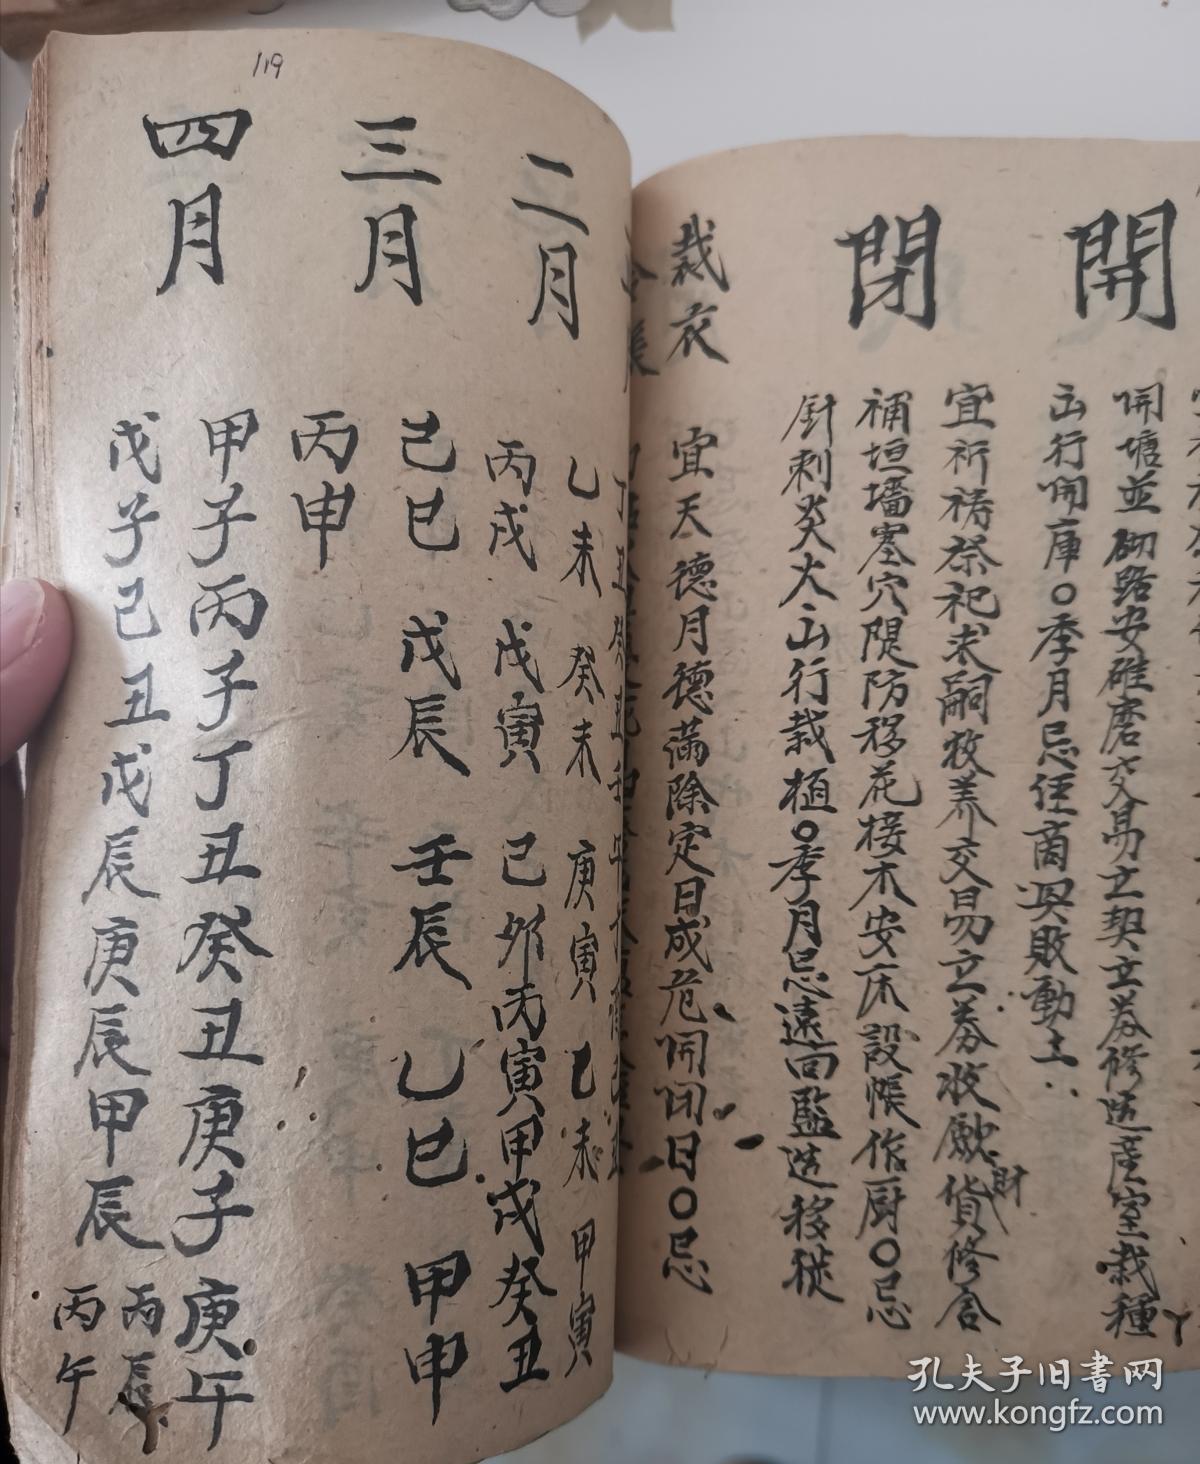 開
開塘並砌路安碓磨交易立契立券修造產室栽種
出行開庫○季月忌往商興敗動土
閉
宜祈祷祭祀求嗣牧养交易立券收
財
貨修合
補垣墻塞穴隄防移花接木安床設帳作厨○忌
針刺炎火出行栽植○季月忌遠回監造移徙
裁衣
宜天德月德滿除定日成危開闭日○忌
二月
乙未 癸未 庚寅 乙未 甲寅
丙戌 戊寅 己卯丙寅甲戌癸丑
三月
己巳 戊辰 壬辰 乙巳 甲申
丙申
四月
甲子丙子丁丑癸丑庚子庚午
戊子己丑戊辰庚辰甲辰
丙辰
丙午
119
孔夫子旧書网
www.kongfz.com